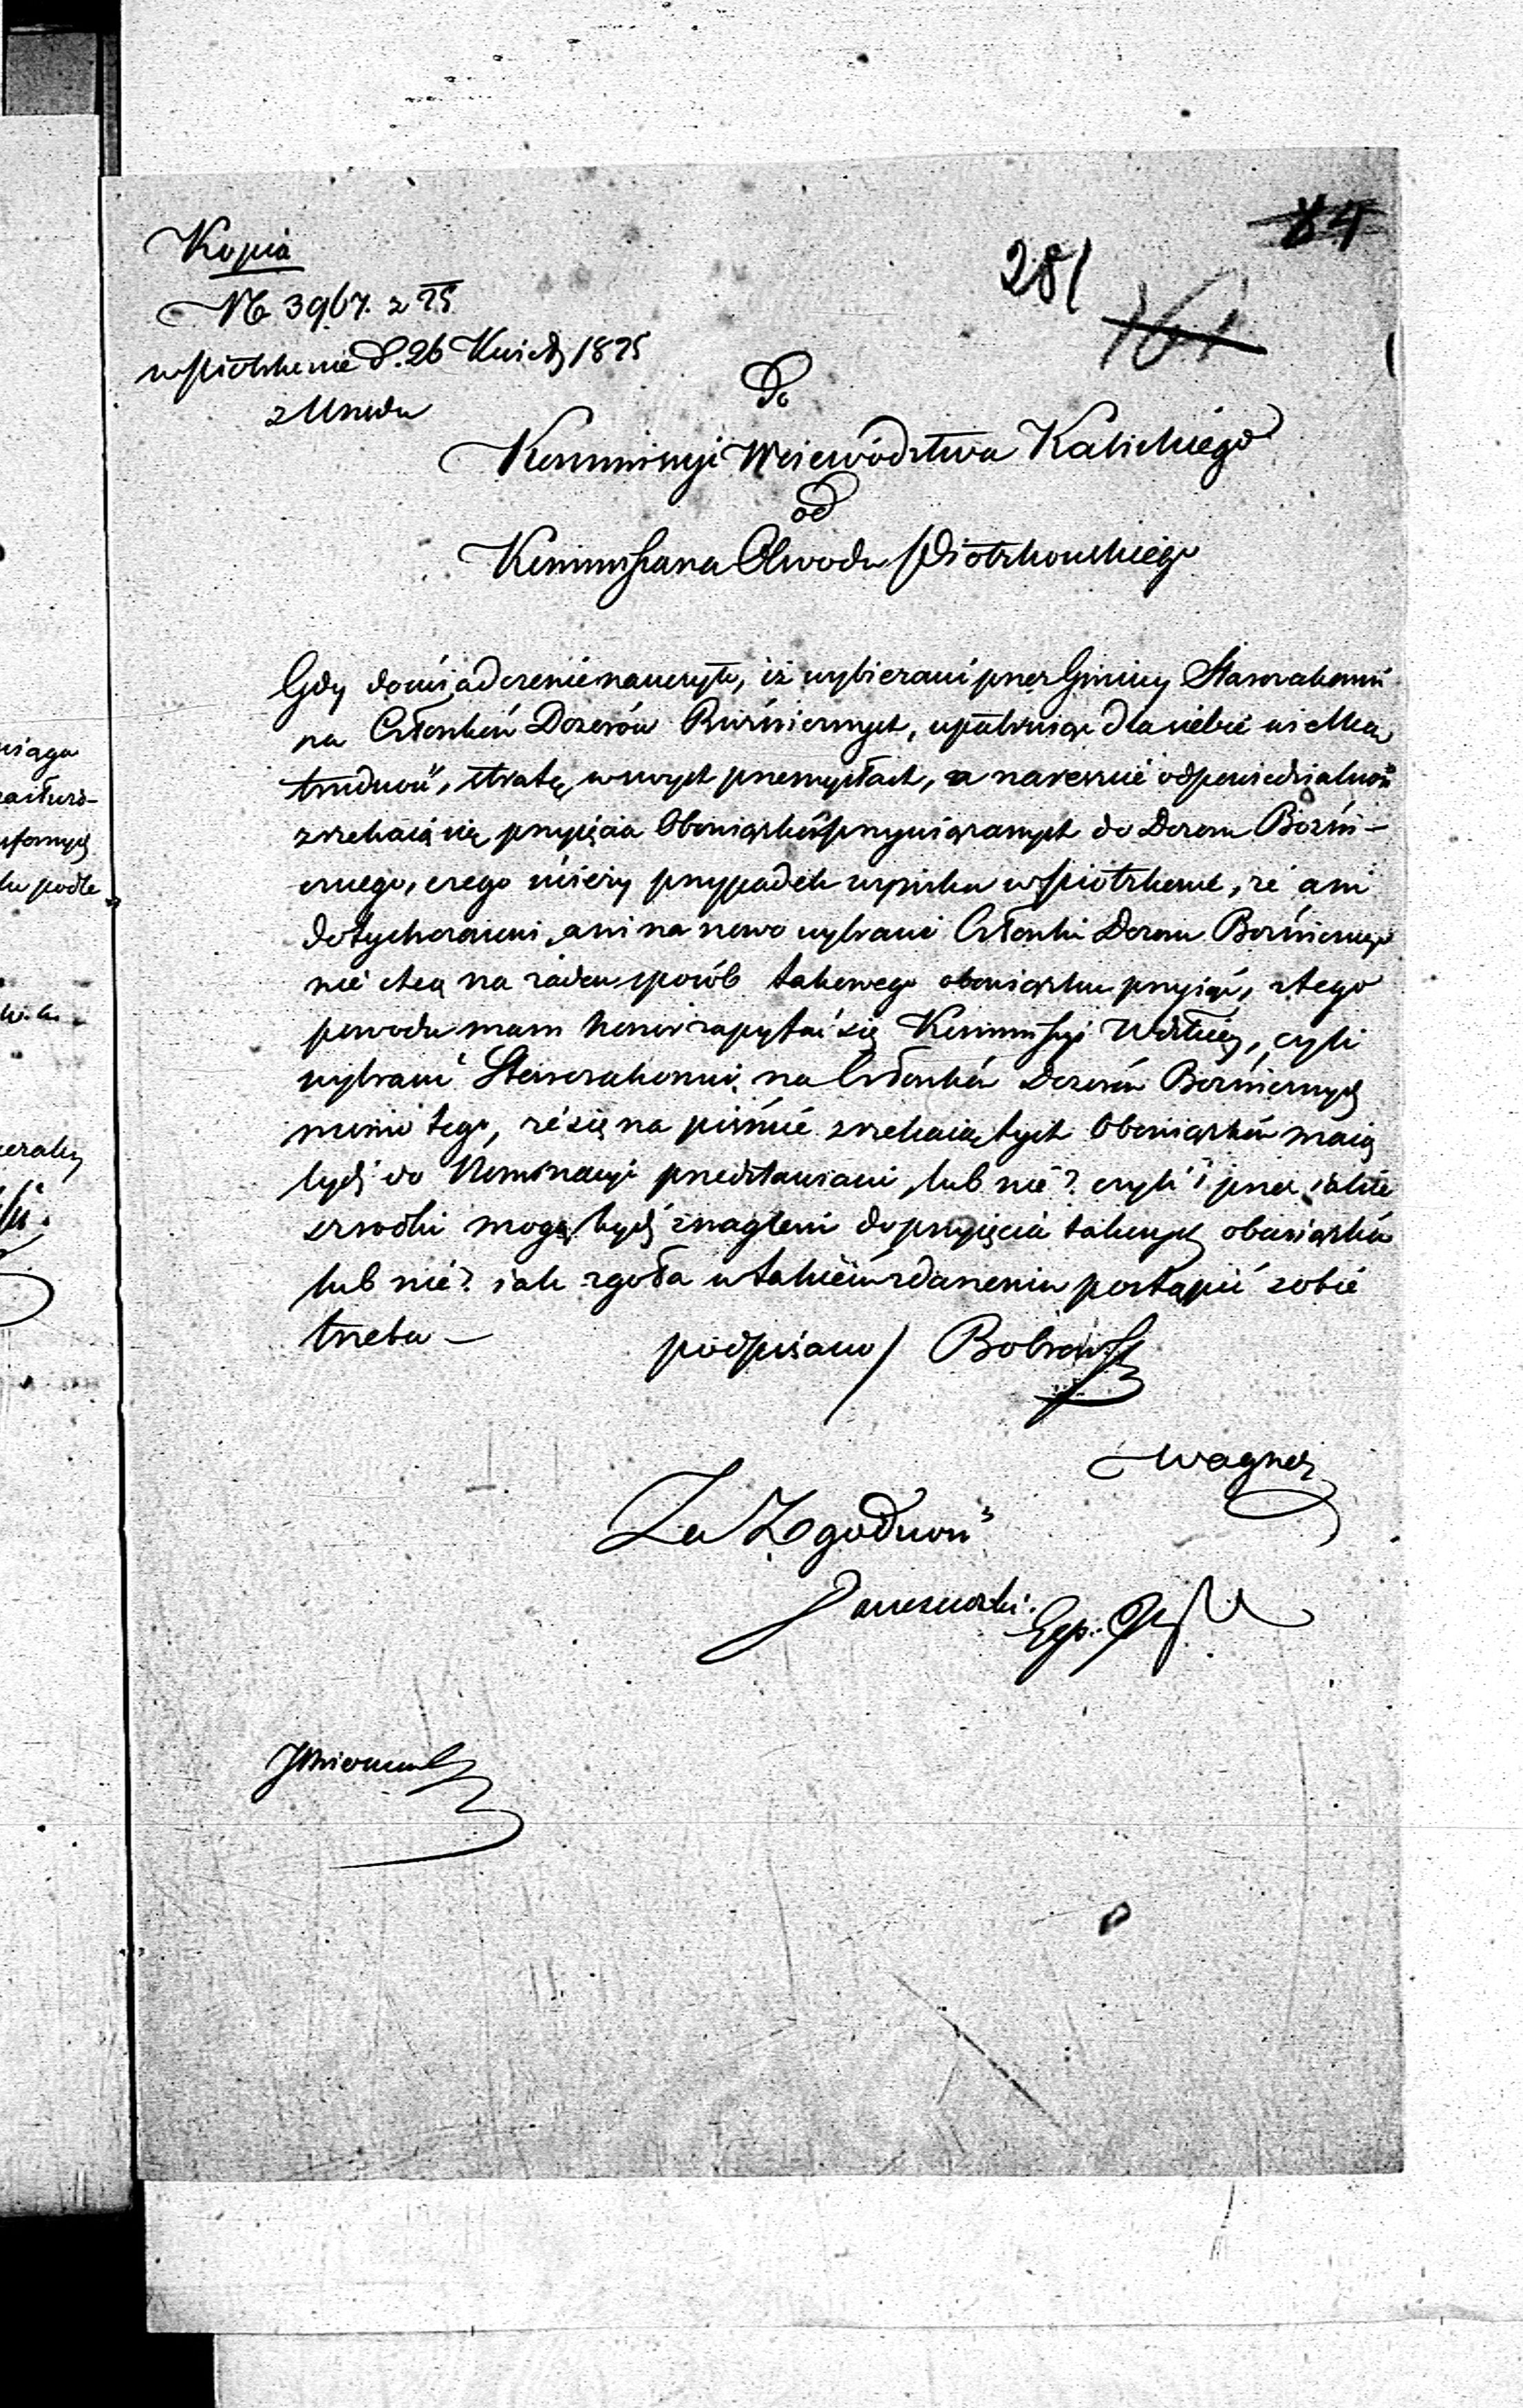 84
281
161
Kopia
No 3967. z 25
w Piotrkowie d. 26 Kwiet. 1825
z Urzędu
Do
Kommissyi Woiewództwa Kaliskiego
od
Kommissarza Obwodu Piotrkowskiego
Gdy doświadczenie nauczyło, iż wybierani przez Gminy Starozakonni
na Członków Dozorów Bóżnicznych, upatruiąc dla siebie wielką
trudność, stratę w swych przemysłach, a nareszcie odpowiedzialność
zrzekaią się przyjęcia Obowiązków przywiązanych do Dozoru Bożni-
cznego, czego świeży przypadek w Piotrkowie, że ani
dotychczasowi, ani na nowo wybrani Członki Dozoru Bożnicznego
nie chcą na żaden sposób takowego obowiązku przyiąć, z tego
powodu mam honor zapytać się Kommissyi Wdzkiey, czyli
wybrani Starozakonni na Członków Dozorów Bożnicznych
mimo tego, że się na piśmie zrzekaią tych Obowiązków maią
bydź do Nominacyi przedstawiani, lub nie? czyli i przez iakie
srzodki mogą bydź znagleni do przyięcia takowych obowiązków
lub nie? iak zgoła w takiem zdarzeniu postąpić sobie
trzeba —
podpisano / Bobrows
Wagner
Za Zgodność